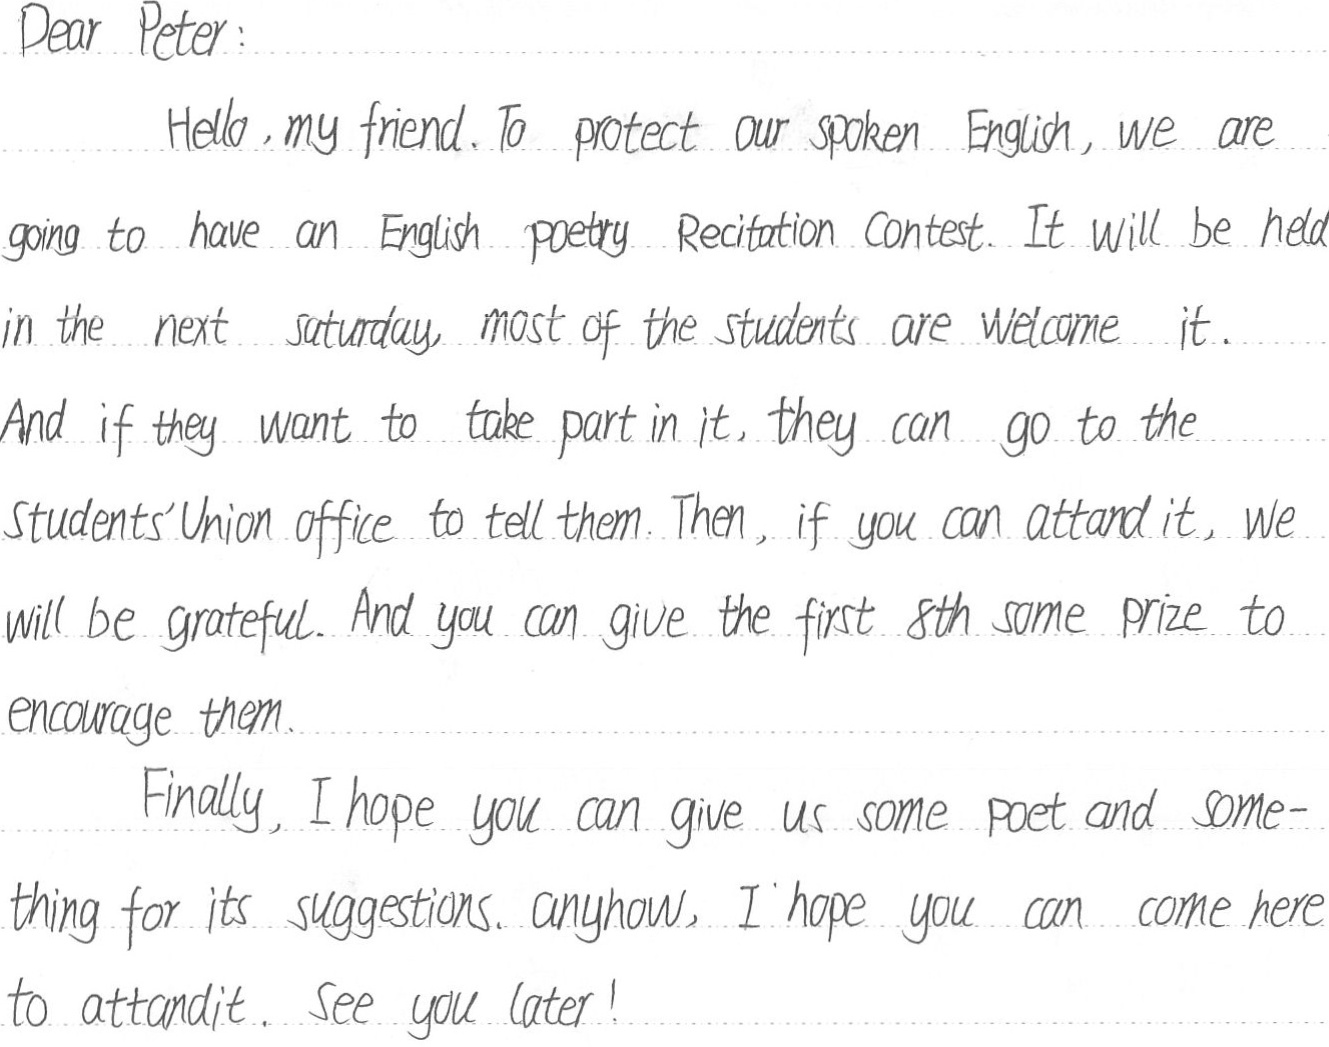 Dear Peter:
Hello, my friend. To protect our spoken English, we are
going to have an English poetry Recitation Contest. It will be held
in the next saturday, most of the students are welcome it.
And if they want to take part in it, they can go to the
Students' Union office to tell them. Then, if you can attand it, we
will be grateful. And you can give the first 8th some prize to
encourage them.
Finally, I hope you can give us some poet and some-
thing for its suggestions. anyhow, I hope you can come here
to attandit. See you later!